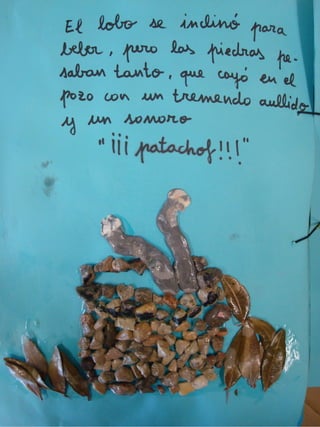 El lobo se inclinó para
beber, pero las piedras pe-
saban tanto, que cayó en el
pozo con un tremendo aullido
y un sonoro
"¡¡¡ patachof!!!"